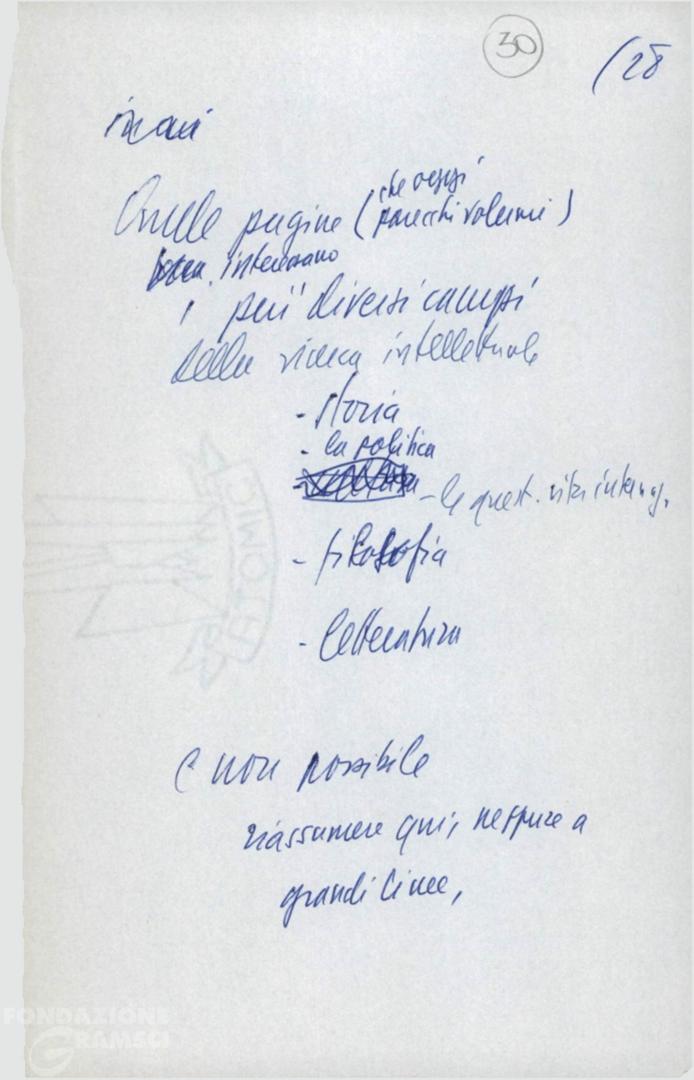 30
(28
Quelle pagine (che oggi
parecchi volumi)
interessano
i più diversi campi
della ricerca intellettuale
- storia
- la politica
- le quest. vita internaz.
- filosofia
- letteratura
È non possibile
riassumere qui, neppure a
grandi linee,
FONDAZIONE
GRAMSCI